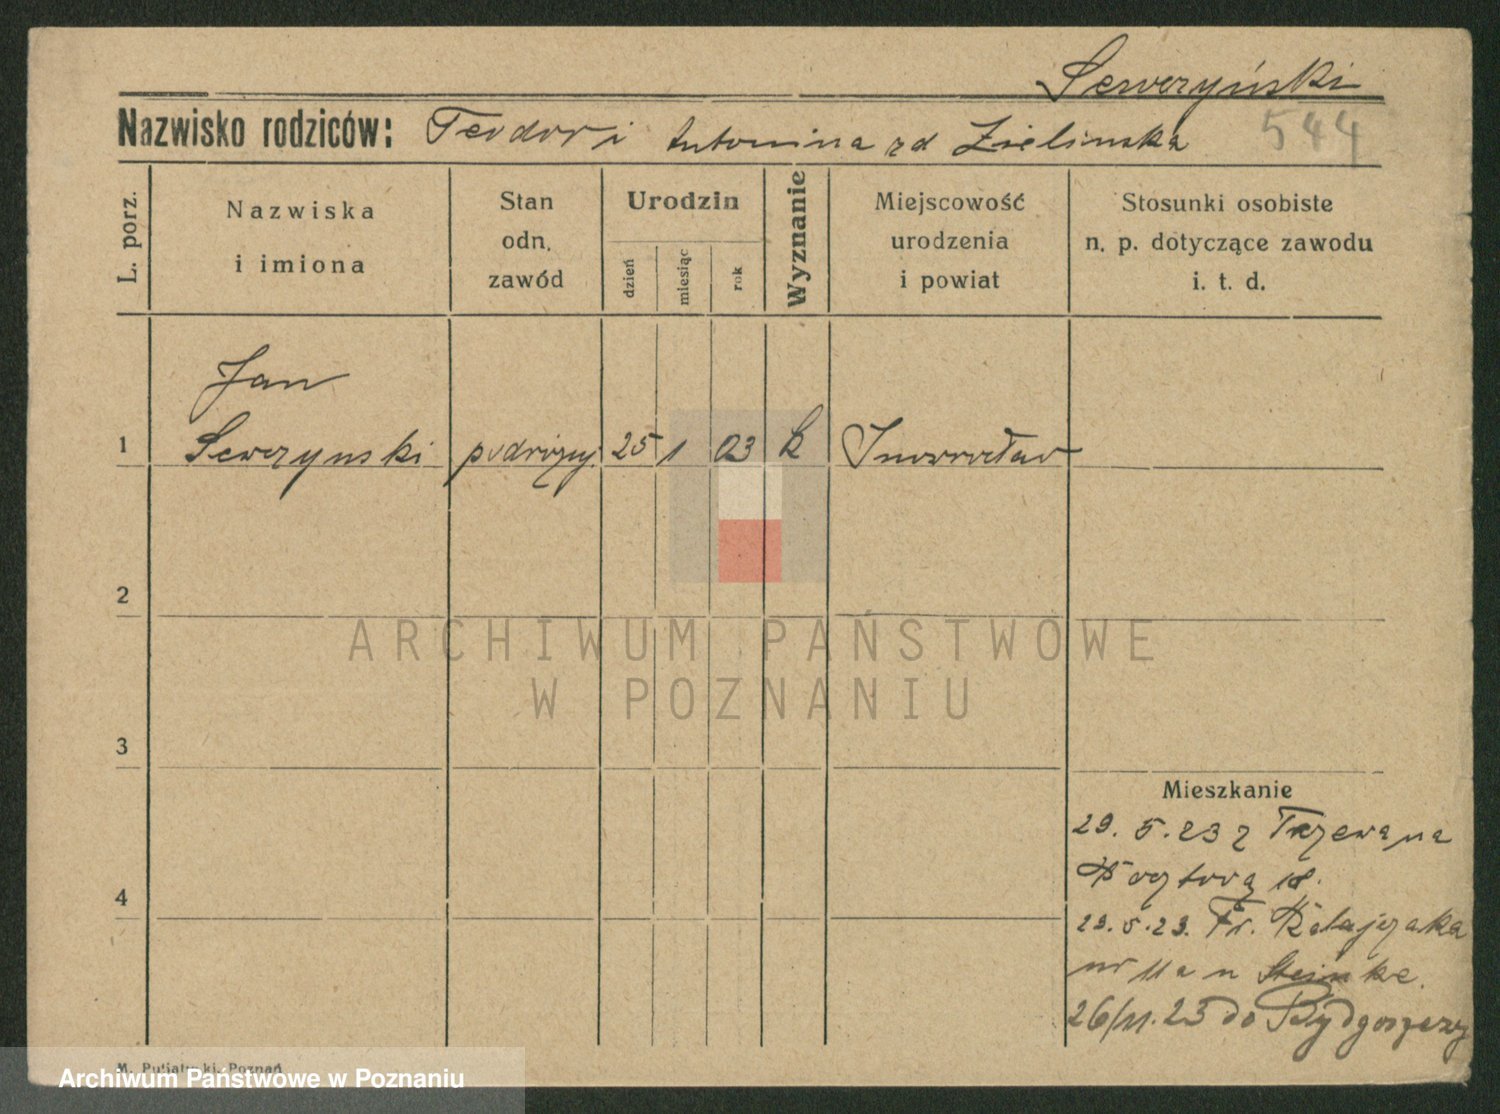 Seweryński
Nazwisko rodziców: Teodor i Antonina zd Zielinska 544
L. porz.
Nazwiska
i imiona
Stan
odn.
zawód
Urodzin
dzień
miesiąc
rok
Wyznanie
Miejscowość
urodzenia
i powiat
Stosunki osobiste
n. p. dotyczące zawodu
i. t. d.
Jan
1 Sewerynski podróżny 25 1 03 k Inowrocław
2
ARCHIWUM PAŃSTWOWE
W POZNANIU
3
Mieszkanie
29. 5. 23 z
18.
4
29. 5. 23. Fr. Ratajczaka
nr 11a u Steinke.
26/11.23 do Bydgoszczy
Poznań
Archiwum Państwowe w Poznaniu